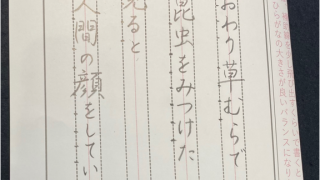 おわり草むらで
昆虫をみつけた
見ると
人間の顔をしてい
ひらがなの大きさが良いバランスになり